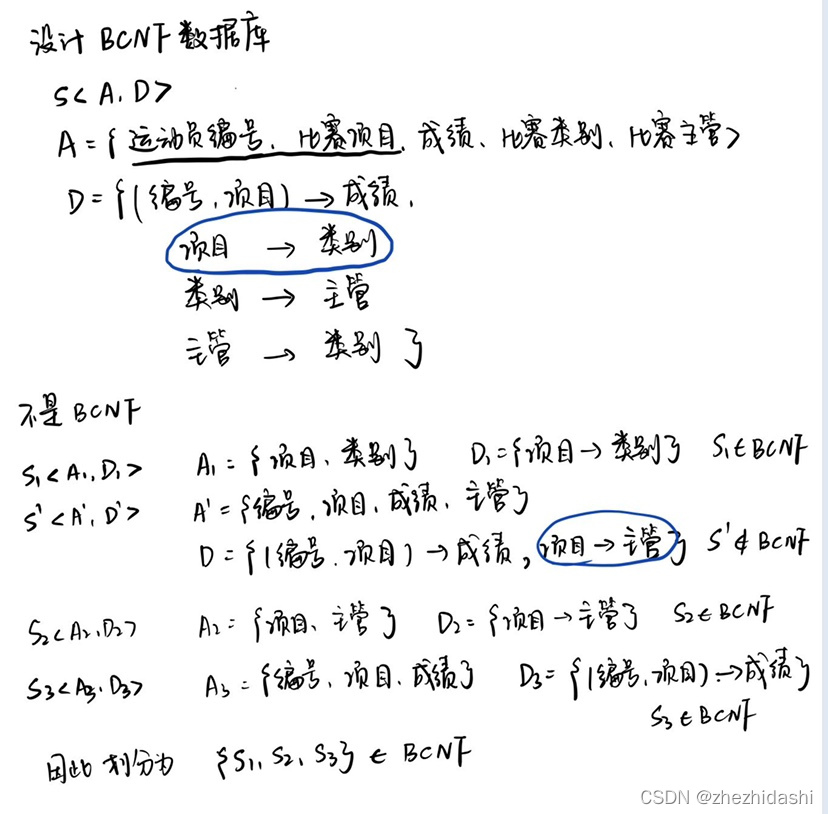 设计 BCNF 数据库
S<A, D>
A = {运动员编号、比赛项目、成绩、比赛类别、比赛主管>
D = {(编号, 项目) → 成绩,
项目 → 类别
类别 → 主管
主管 → 类别}
不是 BCNF
S₁<A₁, D₁> A₁ = {项目、类别} D₁ = {项目 → 类别} S₁ ∈ BCNF
S'<A', D'> A' = {编号, 项目, 成绩, 主管}
D = {(编号, 项目) → 成绩, 项目 → 主管} S' ∉ BCNF
S₂<A₂, D₂> A₂ = {项目、主管} D₂ = {项目 → 主管} S₂ ∈ BCNF
S₃<A₃, D₃> A₃ = {编号、项目、成绩} D₃ = {(编号, 项目) → 成绩}
S₃ ∈ BCNF
因此 划分为 {S₁, S₂, S₃} ∈ BCNF
CSDN @zhezhidashi